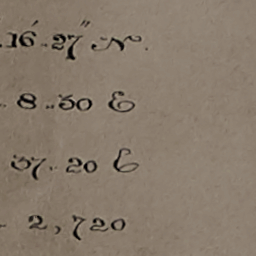 16' .. 27" N.
.. 8 .. 30 E
37 .. 20 E
2,720